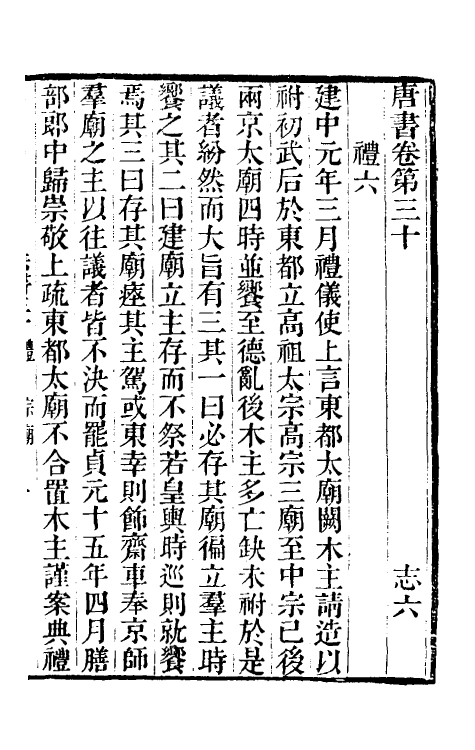 唐書卷第三十　志六
禮六
建中元年三月禮儀使上言東都太廟闕木主請造以
祔初武后於東都立高祖太宗高宗三廟至中宗已後
兩京太廟四時並饗至德亂後木主多亡缺未祔於是
議者紛然而大旨有三其一曰必存其廟徧立羣主時
饗之其二曰建廟立主存而不祭若皇輿時巡則就饗
焉其三曰存其廟瘞其主駕或東幸則飾齋車奉京師
羣廟之主以往議者皆不決而罷貞元十五年四月膳
部郎中歸崇敬上疏東都太廟不合置木主謹案典禮